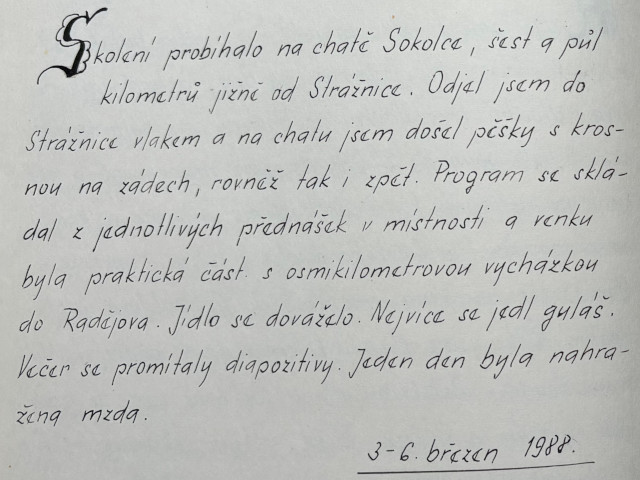 Školení probíhalo na chatě Sokolce, šest a půl
kilometrů jižně od Strážnice. Odjel jsem do
Strážnice vlakem a na chatu jsem došel pěšky s kros-
nou na zádech, rovněž tak i zpět. Program se sklá-
dal z jednotlivých přednášek v místnosti a venku
byla praktická část s osmikilometrovou vycházkou
do Radějova. Jídlo se dováželo. Nejvíce se jedl guláš.
Večer se promítaly diapozitivy. Jeden den byla nahra-
žena mzda.
3-6. březen 1988.